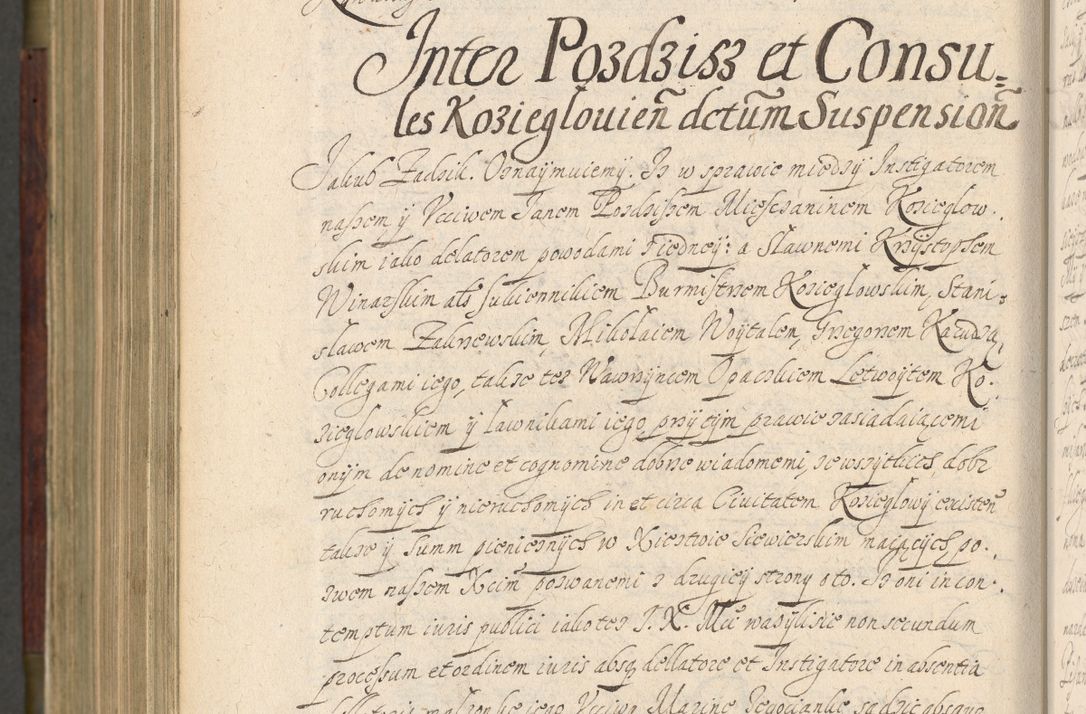 Inter Pozdzisz et Consu=
les Kozieglouien̄ dctum̄ Suspension̄
Jakub Zadzik. Oznaÿmuiemÿ. Iz w sprawie miedzÿ Instigatorem
naszem ÿ Vcciwem Janem Pozdziszem Miesczaninem Kozieglow.
skim iako delatorem powodami z iedneÿ: a Sławnemi Krzÿstophem
Winarskim als sukiennikiem Burmistrzem Kozieglowskim, Stani=
sławem Zakrzewskim, Mikołaiem Woÿtalem, Grzegorzem Kazudzą,
Collegami iego, takze tez Wawrzÿncem Opaczkiem Letwoÿtem Ko.
zieglowskiem ÿ Lawnikami iego, przÿ tÿm prawie zasiadaiącemi
onÿm de nomine et cognomine dobrze wiadomemi, ze wszÿtkich dobr
ruchomÿch ÿ nieruchomÿch in et circa Ciuitatem Kozieglowÿ existen̄
takze ÿ Summ pienieznÿch w Xięstwie Siewierskim maiącÿch, po.
zwem naszem Xcim̄ pozwanemi z drugieÿ stronÿ o to. Iz oni in con.
temptum iuris publici iako tez J. X. Mci wazÿli sie non secundum
processum et ordinem iuris absq dellatore et Instigatore in absentia
malzonke iego Vcciwą Marine sadzic absque